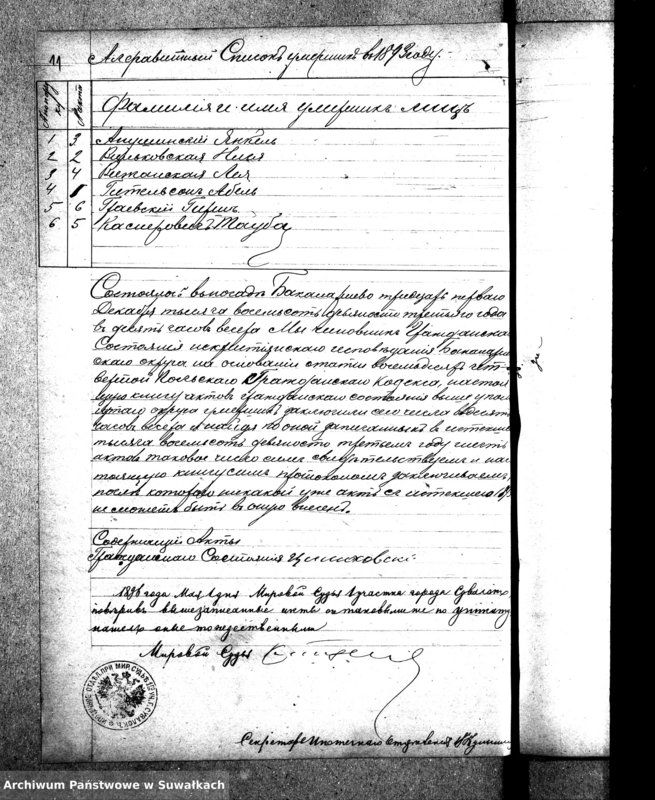 11
Алфавитный Списокъ умершихъ въ 1893 году.
Фамилія и имя умершихъ лицъ
1 3 Апушинскій Янкель
2 2
3 4 Лея
4 1 Гительсонъ Абель
5 6 Граевскій Гиршъ
6 5 Касперовичъ Тауба
Состоялось въ посадѣ Бакаларжево тридцать перваго
Декабря тысяча восемьсотъ девяносто третьяго года
въ девять часовъ вечера Мы Чиновникъ Гражданскаго
Состоянія нехристіанскаго исповѣданія Бакаларжев
скаго округа на основаніи статьи восемьдесятъ чет
вертой Польскаго Гражданскаго Кодекса, настоя
щую книгу актовъ гражданскаго состоянія выше упом
округа умершихъ заключили сего числа въ десять
часовъ вечера и найдя по оной записанныхъ въ истекшемъ
тысяча восемьсотъ девяносто третьемъ году шесть
актовъ таковое число симъ свидѣтельствуемъ и нас
тоящую книгу симъ протоколомъ заканчиваемъ,
послѣ котораго никакой уже актъ съ истекшаго
не сможетъ быть въ оную внесенъ.
Содержащій Акты
Гражданскаго Состоянія
1896 года Мая 1 дня Мировой Судья 1 участка города Сувалокъ
повѣривъ вышезаписанные акты и таковыми же по
нашелъ оные тождественными
Мировой Судья
Секретарь Ипотечнаго Отдѣленія
Archiwum Państwowe w Suwałkach